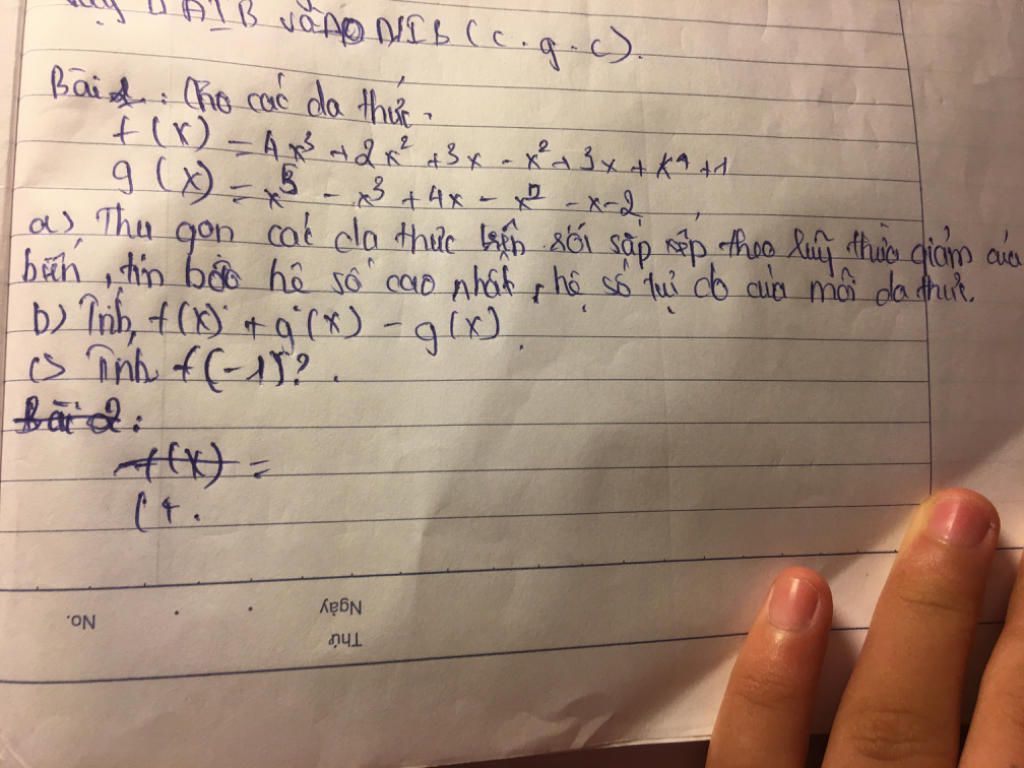 ΔAIB và ΔNIB (c.g.c).
Bài 2: Cho các đa thức.
f(x) = 4x³ + 2x² + 3x - x² + 3x + x⁴ + 1
g(x) = x³ - x³ + 4x - x² - x - 2
a) Thu gọn các đa thức trên rồi sắp xếp theo luỹ thừa giảm của
biến, tìm bậc hệ số cao nhất, hệ số tự do của mỗi đa thức.
b) Tính f(x) + g(x) - g(x).
c) Tính f(-1)?.
Bài 2:
f(x) =
(+.
Thứ
Ngày
No.